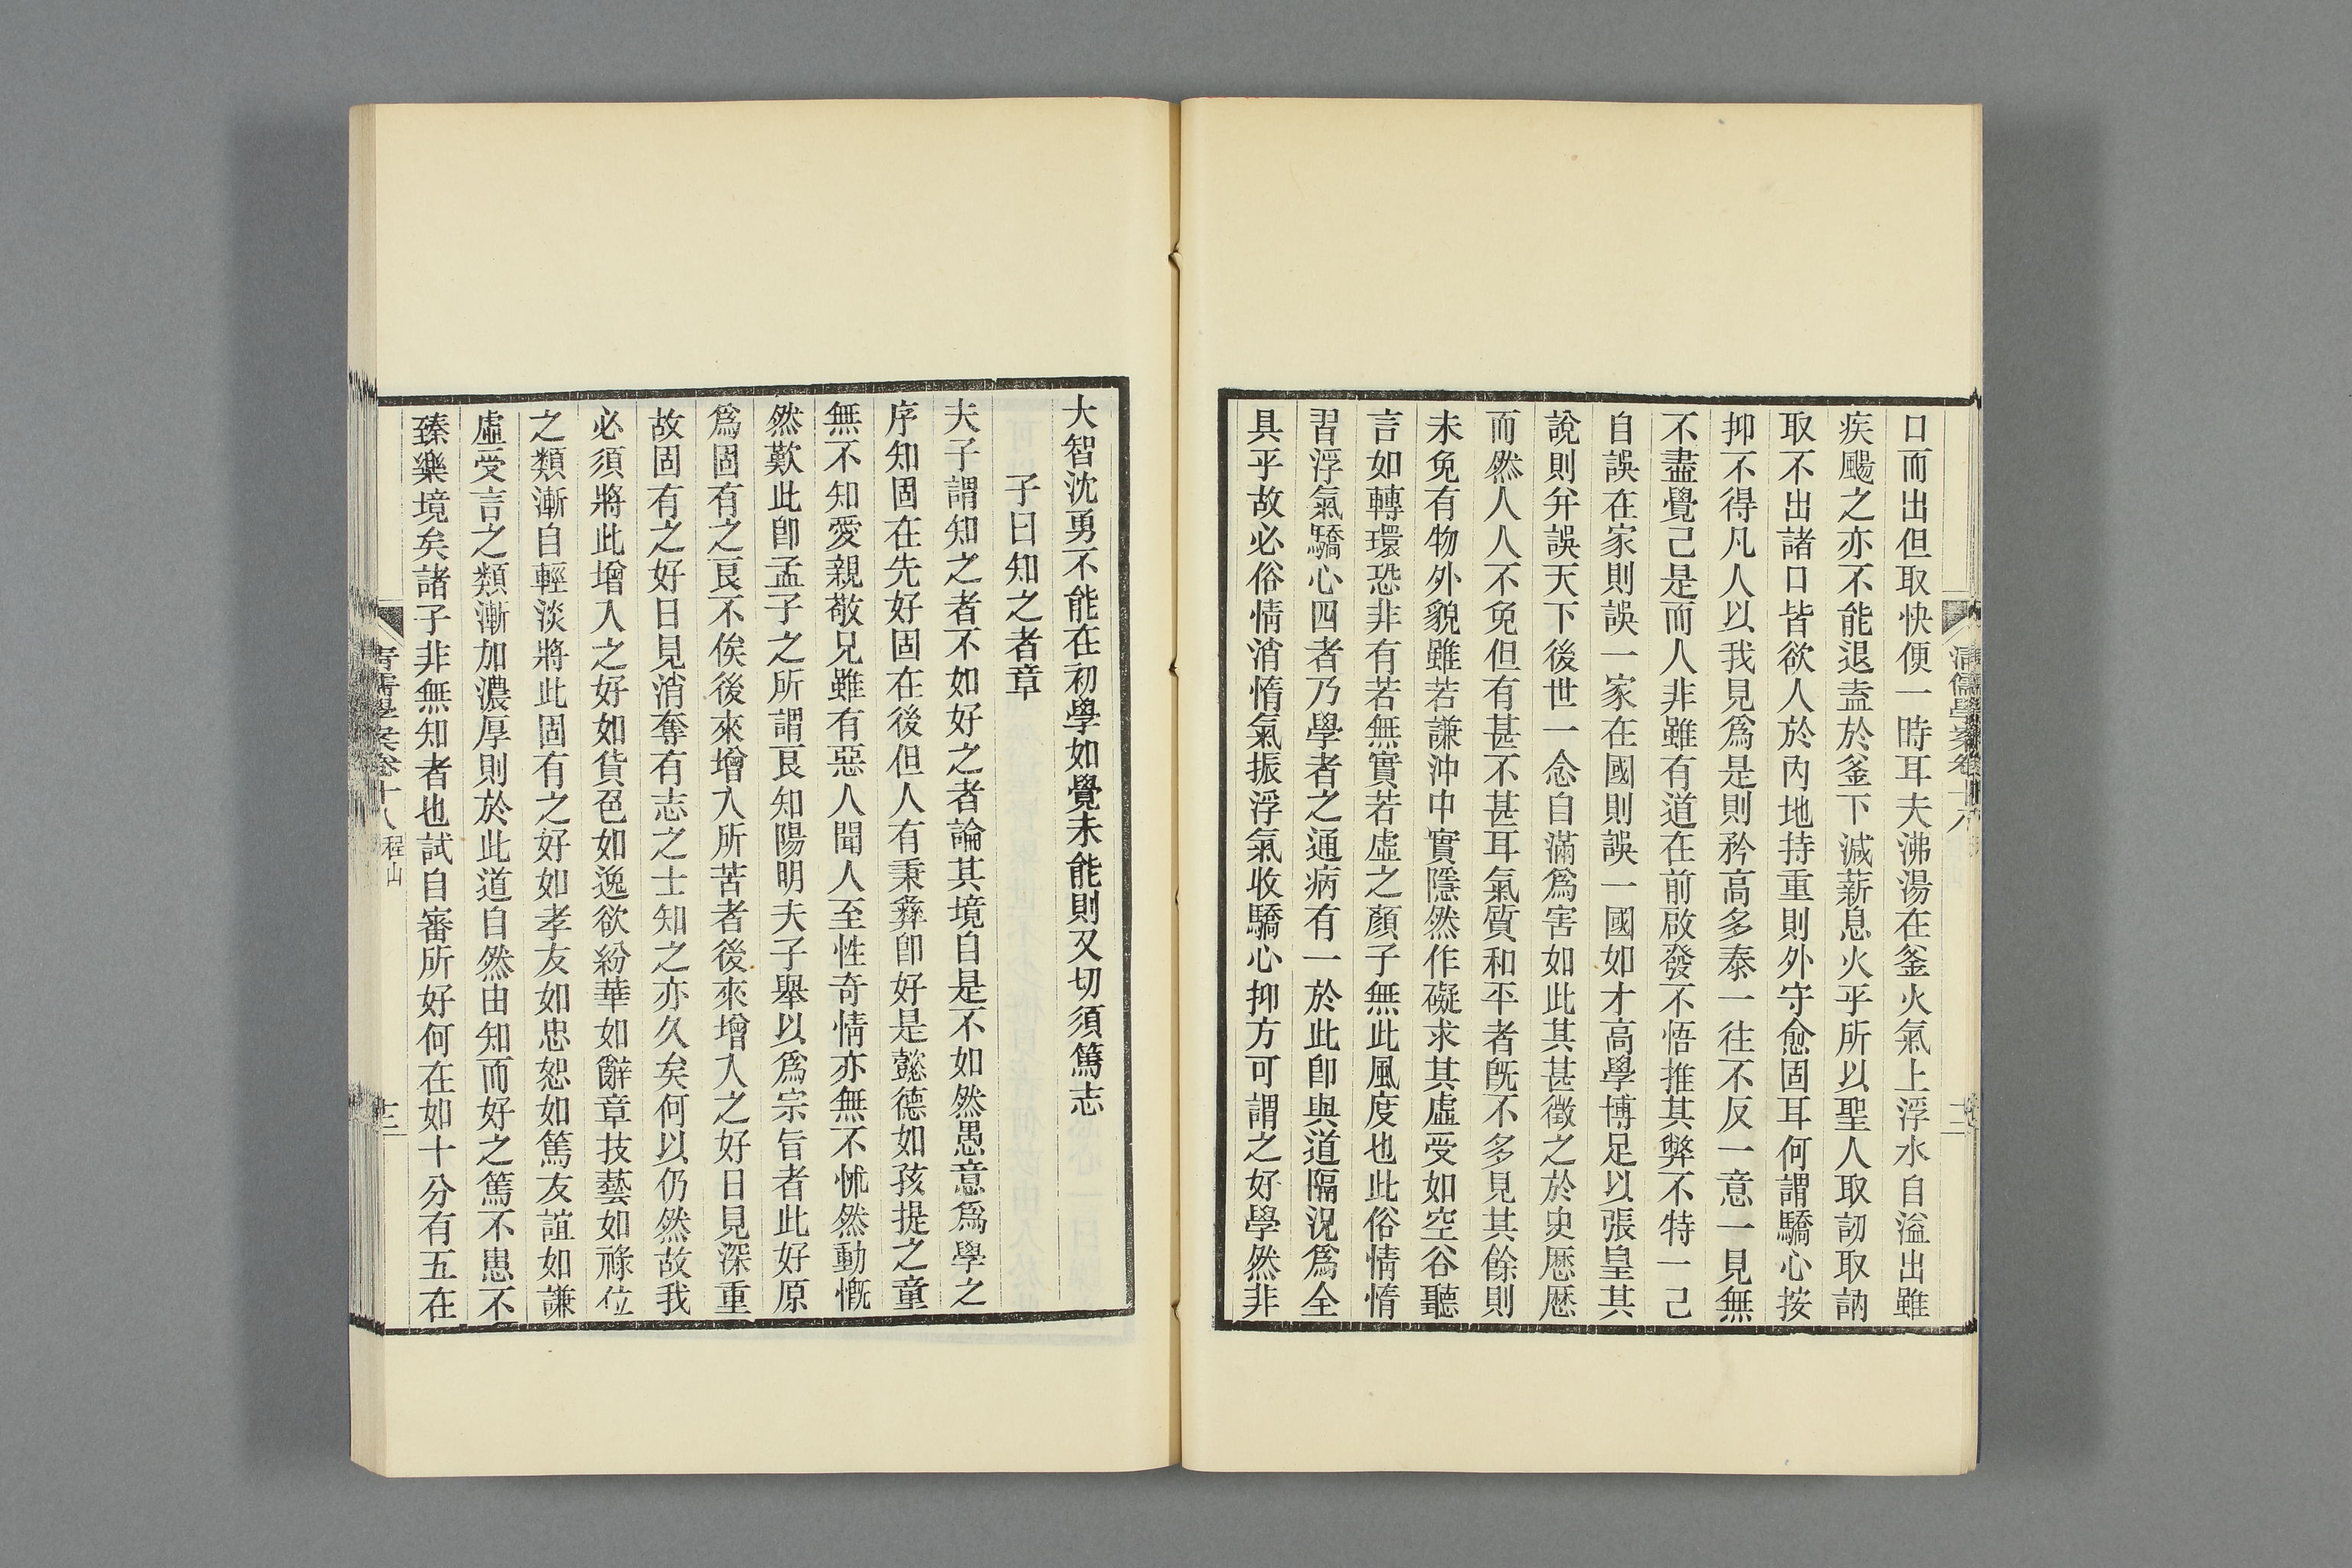 口而出但取快便一時耳夫沸湯在釜火氣上浮水自溢出雖
疾颺之亦不能退盍於釜下減薪息火乎所以聖人取訒取訥
取不出諸口皆欲人於內地持重則外守愈固耳何謂驕心按
抑不得凡人以我見爲是則矜高多泰一往不反一意一見無
不盡覺己是而人非雖有道在前啟發不悟推其弊不特一己
自誤在家則誤一家在國則誤一國如才高學博足以張皇其
說則弁誤天下後世一念自滿爲害如此其甚徵之於史歷歷
而然人人不免但有甚不甚耳氣質和平者旣不多見其餘則
未免有物外貌雖若謙沖中實隱然作礙求其虛受如空谷聽
言如轉環恐非有若無實若虛之顏子無此風度也此俗情惰
習浮氣驕心四者乃學者之通病有一於此卽與道隔況爲全
具乎故必俗情消惰氣振浮氣收驕心抑方可謂之好學然非
大智沈勇不能在初學如覺未能則又切須篤志
子曰知之者章
夫子謂知之者不如好之者論其境自是不如然愚意爲學之
序知固在先好固在後但人有秉彝卽好是懿德如孩提之童
無不知愛親敬兄雖有惡人聞人至性奇情亦無不怵然動慨
然歎此卽孟子之所謂良知陽明夫子舉以爲宗旨者此好原
爲固有之良不俟後來增入所苦者後來增入之好日見深重
故固有之好日見消奪有志之士知之亦久矣何以仍然故我
必須將此增入之好如貨色如逸欲紛華如辭章技藝如祿位
之類漸自輕淡將此固有之好如孝友如忠恕如篤友誼如謙
虛受言之類漸加濃厚則於此道自然由知而好之篤不患不
臻樂境矣諸子非無知者也試自審所好何在如十分有五在
清儒學案卷十八 程山